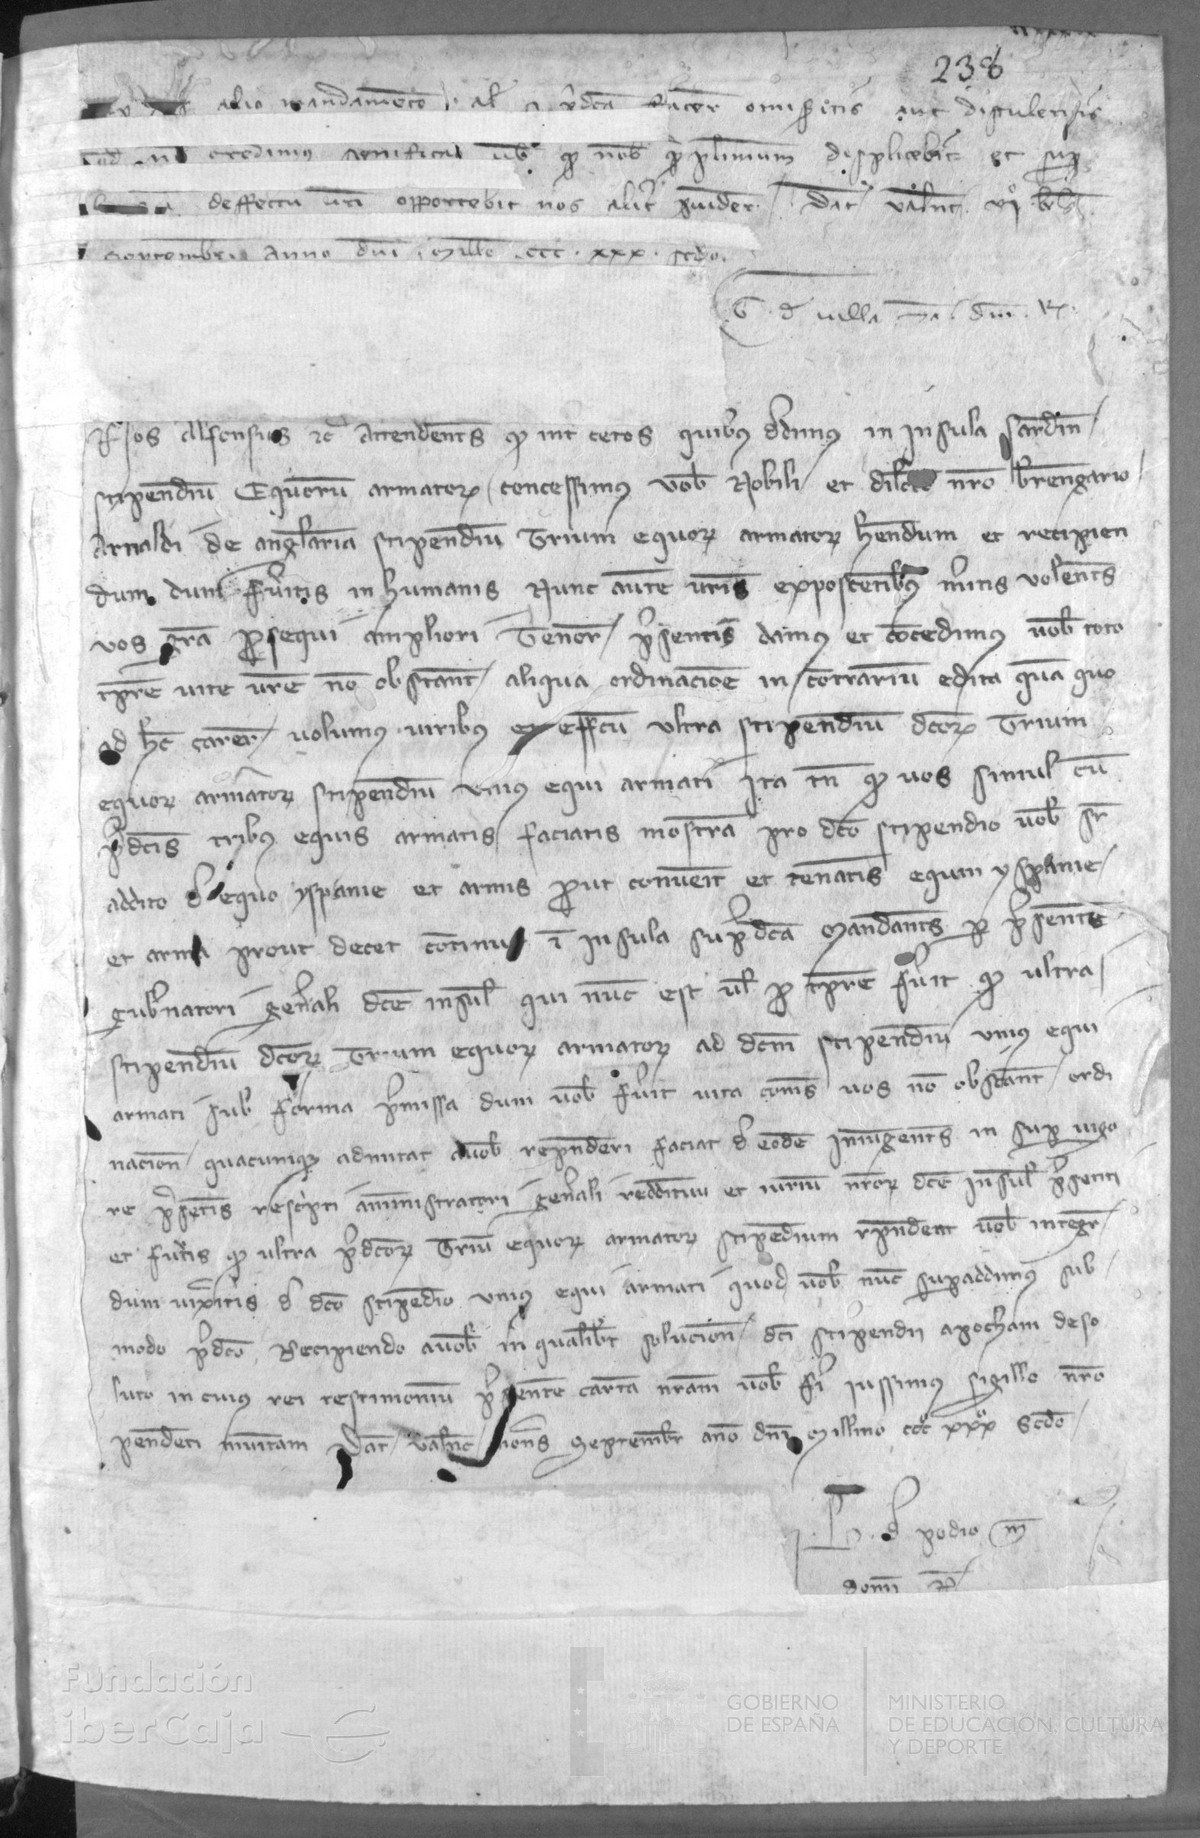 238
alio mandamento al predca facer omiseritis aut distuleritis
credimus vob qd nob plimum displicebit et sup
deffectu vri opportebit nos alit pvider. Dat valnc vi kls
Septembr. Anno dni Mille ccc xxx scdo.
G de villa dni R.
Nos Alfonsus etc Attendents qd int ceteros quibus ddimus in insula Sardin
stipendiu Equoru armatorz concessimus vob Nobili et dilcto nro brengario
Arnaldi de anglaria stipendiu Trium equorz armatorz hendum et recipien
dum dum fueritis in humanis Nunc aute vris exposcentibus mitis volents
vos gra psequi ampliori Tenor psentis damus et cocedimus vob toto
tpre vite vre no obstant aliqua ordinacioe in cotrariu edita qua quo
ad hc carer volumus viribus et effcu ultra stipendiu dcorz Trium
equorz armatorz stipendiu unius equi armati Ita tn qd vos simul cu
pdcis tribus equis armatis faciatis mostra pro dco stipendio vob sr
addito d equo yspanie et armis put convenit et tenatis equm yspanie
et arma prout decet cotinue i insula supdca Mandants p psente
gubnatori genali dce insul qui nunc est vl p tpre fuit qd ultra
stipendiu dcorz Trium equorz armatorz ad dcm stipendiu unius equi
armati sub forma pmissa dum vob fuit vita coms vos no obstant ordi
nacion quacumqz admitat avob respnderi faciat d eode Iniungents in sup vigo
re psetis rescpti aministratori genali reddituu et iuriu nrorz dce insul psenti
et futis qd ultra pdcorz Triu equorz armatorz stipedium rpndeat vob integr
dum vixitis d dco stipedio unius equi armati quod vob nuc supaddimus sub
modo pdco Recipiendo avob in qualibt solucion dci stipendii apocham de so
luto in cuius rei testimoniu psente carta nram vob fi iussimus sigillo nro
pendeti munitam Dat valnc nons Septembr ano dni Millimo ccc xxx scdo
B. d podio m
domi R
Fundación
iberCaja
GOBIERNO
DE ESPAÑA
MINISTERIO
DE EDUCACIÓN, CULTURA
Y DEPORTE